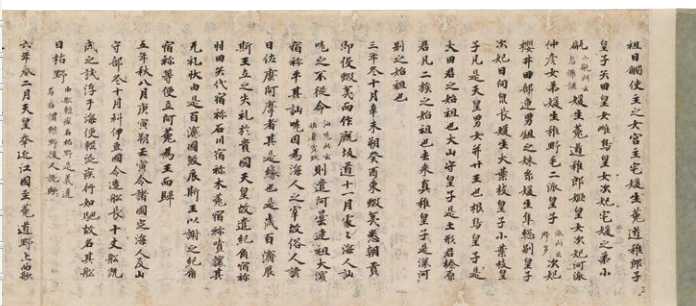 祖日觸使主之女宮主宅媛生菟道稚郎子
皇子矢田皇女雌鳥皇女次妃宅媛之弟小
甂媛生菟道稚郎姬皇女次妃河派
仲彥女弟媛生稚野毛二派皇子次妃
櫻井田部連男鉏之妹糸媛生隼總別皇子
次妃日向泉長媛生大葉枝皇子小葉枝皇
子凡是天皇男女并廿王也根鳥皇子是
大田君之始祖也大山守皇子是土形君榛原
君凡二族之始祖也去来真稚皇子是深河
別之始祖也
三年冬十月辛未朔癸酉東蝦夷悉朝貢
即役蝦夷而作廐坂道十一月處々海人訕
哤之不從命則遣阿曇連祖大濱
宿祢平其訕哤因為海人之宰故俗人諺
曰佐麼阿摩者其是緣也是歲百濟辰
斯王立之失礼於貴國天皇故遣紀角宿祢
羽田矢代宿祢石川宿祢木菟宿祢嘖讓其
无礼狀由是百濟國殺辰斯王以謝之紀角
宿祢等便立阿花為王而歸
五年秋八月庚寅朔壬寅令諸國定海人及山
守部冬十月科伊豆國令造船長十丈船既
成之試浮于海便輕泛疾行如馳故名其船
曰枯野由船輕疾名枯野是義違焉若謂輕野後人訛歟
六年春二月天皇幸近江國至菟道野上而歌